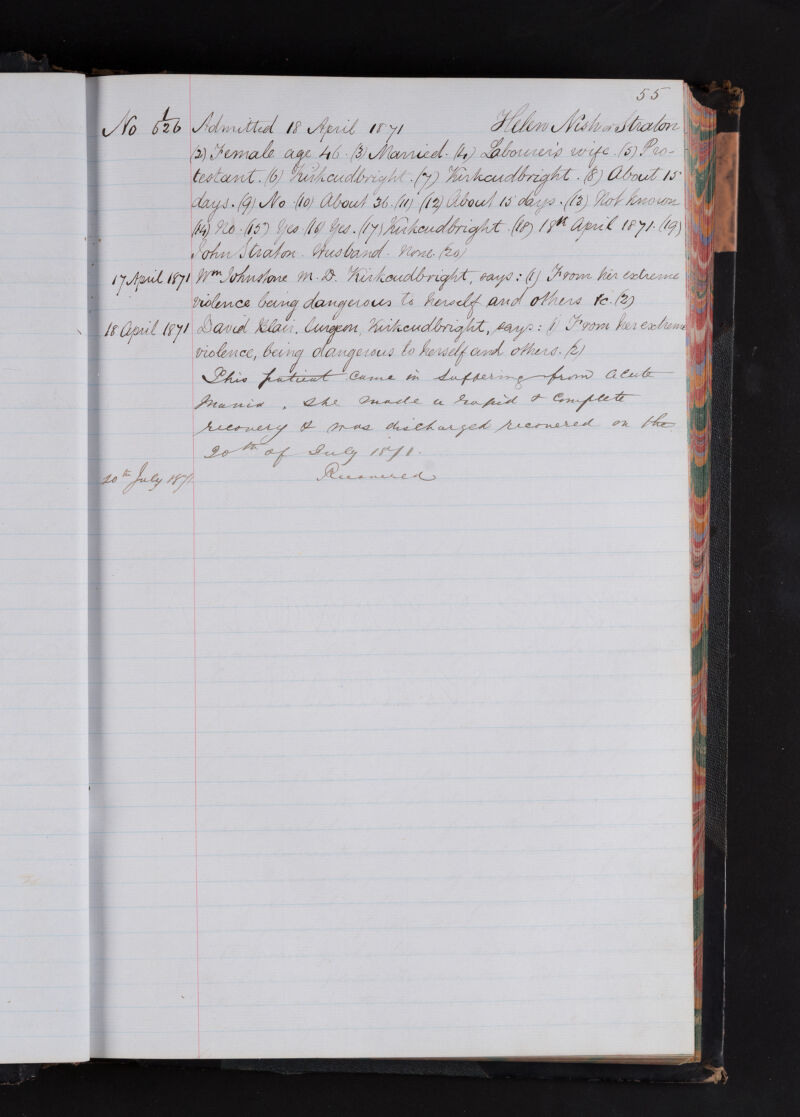 55
No 1/626 Admitted 18 April 1871 Helen Nish or Straton
(2) Female age 46. (3) Married. (4) Labourer's wife. (5) Pro-
testant. (6) Kirkcudbright. (7) Kirkcudbright. (8) About 15
days. (9) No (10) About 36. (11) (12) About 15 days. (13) Not known
(14) No. (15) Yes. (16) Yes. (17) Kirkcudbright. (18) 18th April 1871. (19)
John Straton. Husband. None. (20)
17 April 1871 Wm Johnstone M.D. Kirkcudbright, says: (1) From her extreme
violence being dangerous to herself and others &c. (2)
18 April 1871 David Blair, Surgeon, Kirkcudbright, says: (1) From her extreme
violence, being dangerous to herself and others. (2)
This patient came in suffering from acute
mania. She made a rapid & complete
recovery & was discharged recovered on the
20th of July 1871.
20th July 1871. Recovered